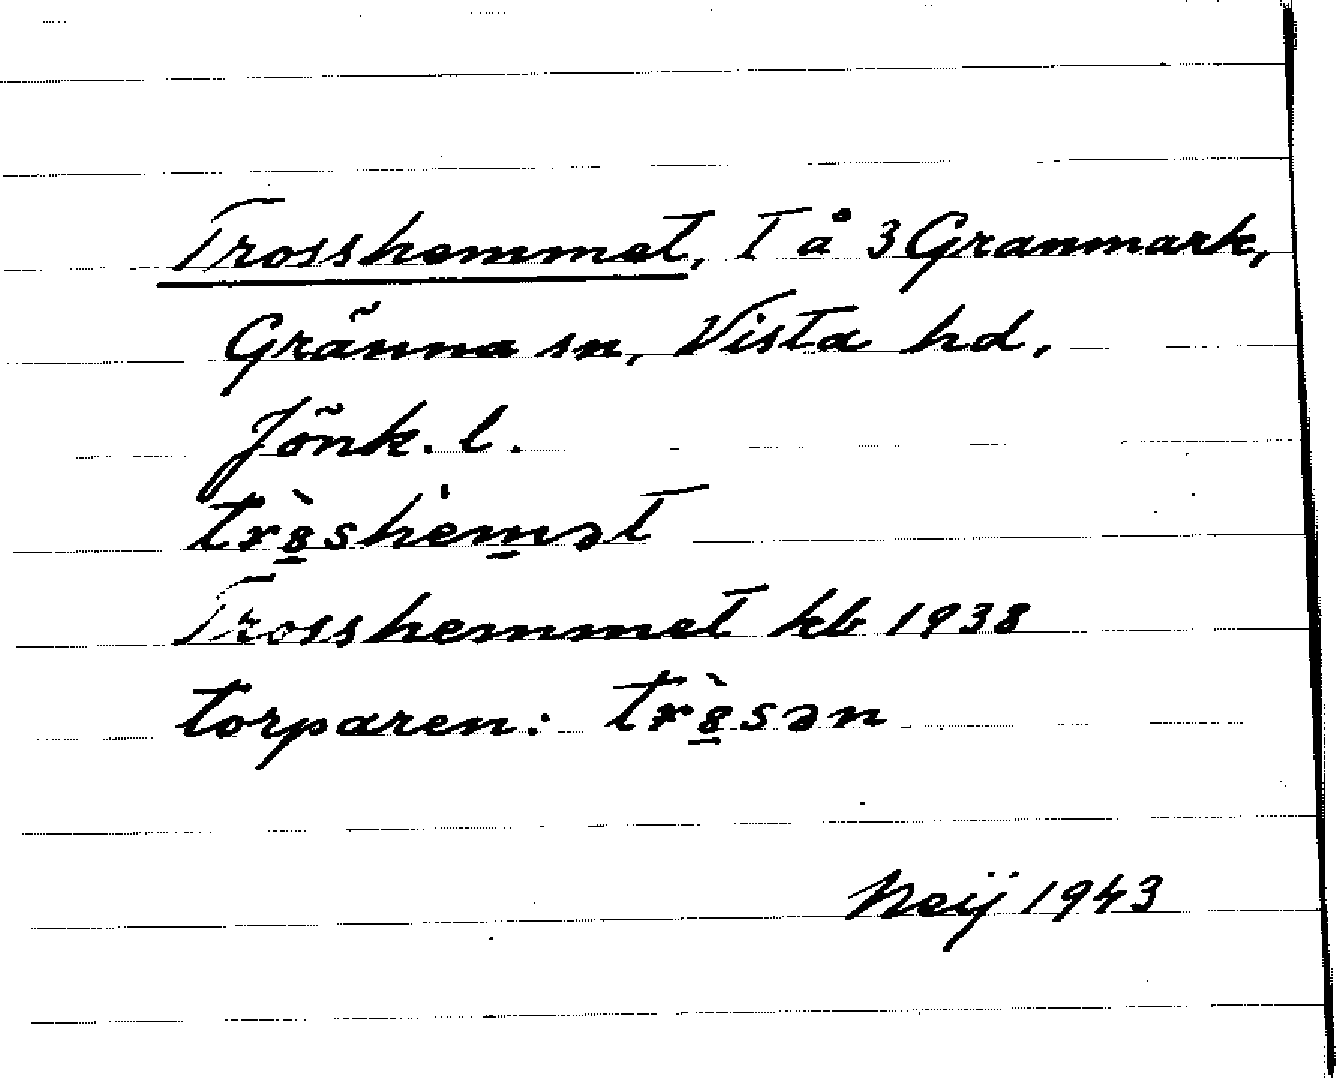 Trosshemmet, T å 3 Granmark,
Gränna sn, Vista hd,
Jönk. l.
trò̱shem̱ət
Trosshemmet kb 1938
torparen: trò̱sən
Neij 1943